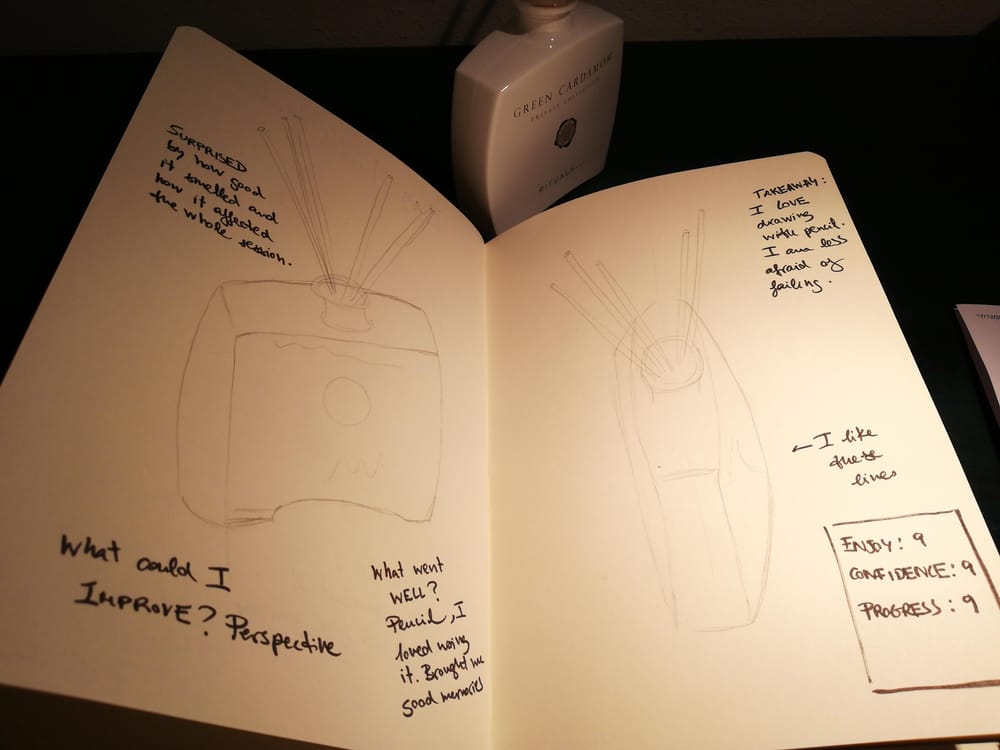 GREEN CARDAMOM
PRIVATE COLLECTION
RITUALS...
SURPRISED
by how good
it smelled and
how it affected
the whole session.
What could I
IMPROVE? Perspective
What went
WELL?
Pencil, I
loved using
it. Brought me
good memories
TAKEAWAY:
I LOVE
drawing
with pencil.
I am less
afraid of
failing.
← I like
these
lines
ENJOY: 9
CONFIDENCE: 9
PROGRESS: 9